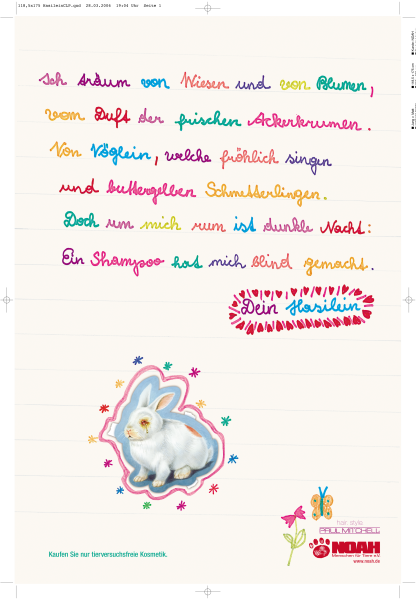 118,5x175 HaslleinCLP.qxd 28.03.2006 19:04 Uhr Seite 1
Ich träum von Wiesen und von Blumen,
vom Duft der frischen Ackerkrumen.
Von Vöglein, welche fröhlich singen
und buttergelben Schmetterlingen.
Doch um mich rum ist dunkle Nacht:
Ein Shampoo hat mich blind gemacht.
Dein Hasilein
hair style
PAUL MITCHELL
NOAH
Menschen für Tiere e.V.
www.noah.de
Kaufen Sie nur tierversuchsfreie Kosmetik.